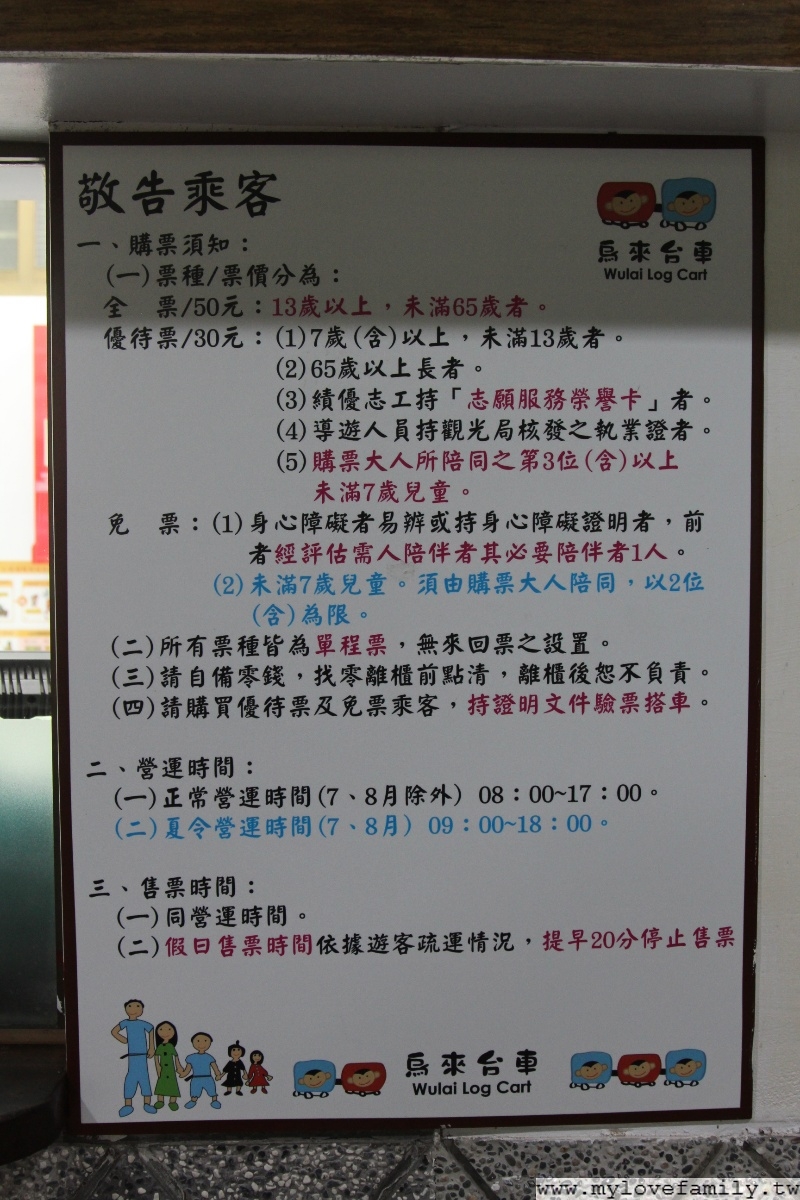 敬告乘客
烏來台車
Wulai Log Cart
一、購票須知：
(一)票種/票價分為：
全　票/50元：13歲以上，未滿65歲者。
優待票/30元：(1)7歲(含)以上，未滿13歲者。
(2)65歲以上長者。
(3)績優志工持「志願服務榮譽卡」者。
(4)導遊人員持觀光局核發之執業證者。
(5)購票大人所陪同之第3位(含)以上
未滿7歲兒童。
免　票：(1)身心障礙者易辨或持身心障礙證明者，前
者經評估需人陪伴者其必要陪伴者1人。
(2)未滿7歲兒童。須由購票大人陪同，以2位
(含)為限。
(二)所有票種皆為單程票，無來回票之設置。
(三)請自備零錢，找零離櫃前點清，離櫃後恕不負責。
(四)請購買優待票及免票乘客，持證明文件驗票搭車。
二、營運時間：
(一)正常營運時間(7、8月除外) 08：00~17：00。
(二)夏令營運時間(7、8月) 09：00~18：00。
三、售票時間：
(一)同營運時間。
(二)假日售票時間依據遊客疏運情況，提早20分停止售票
烏來台車
Wulai Log Cart
www.mylovefamily.tw